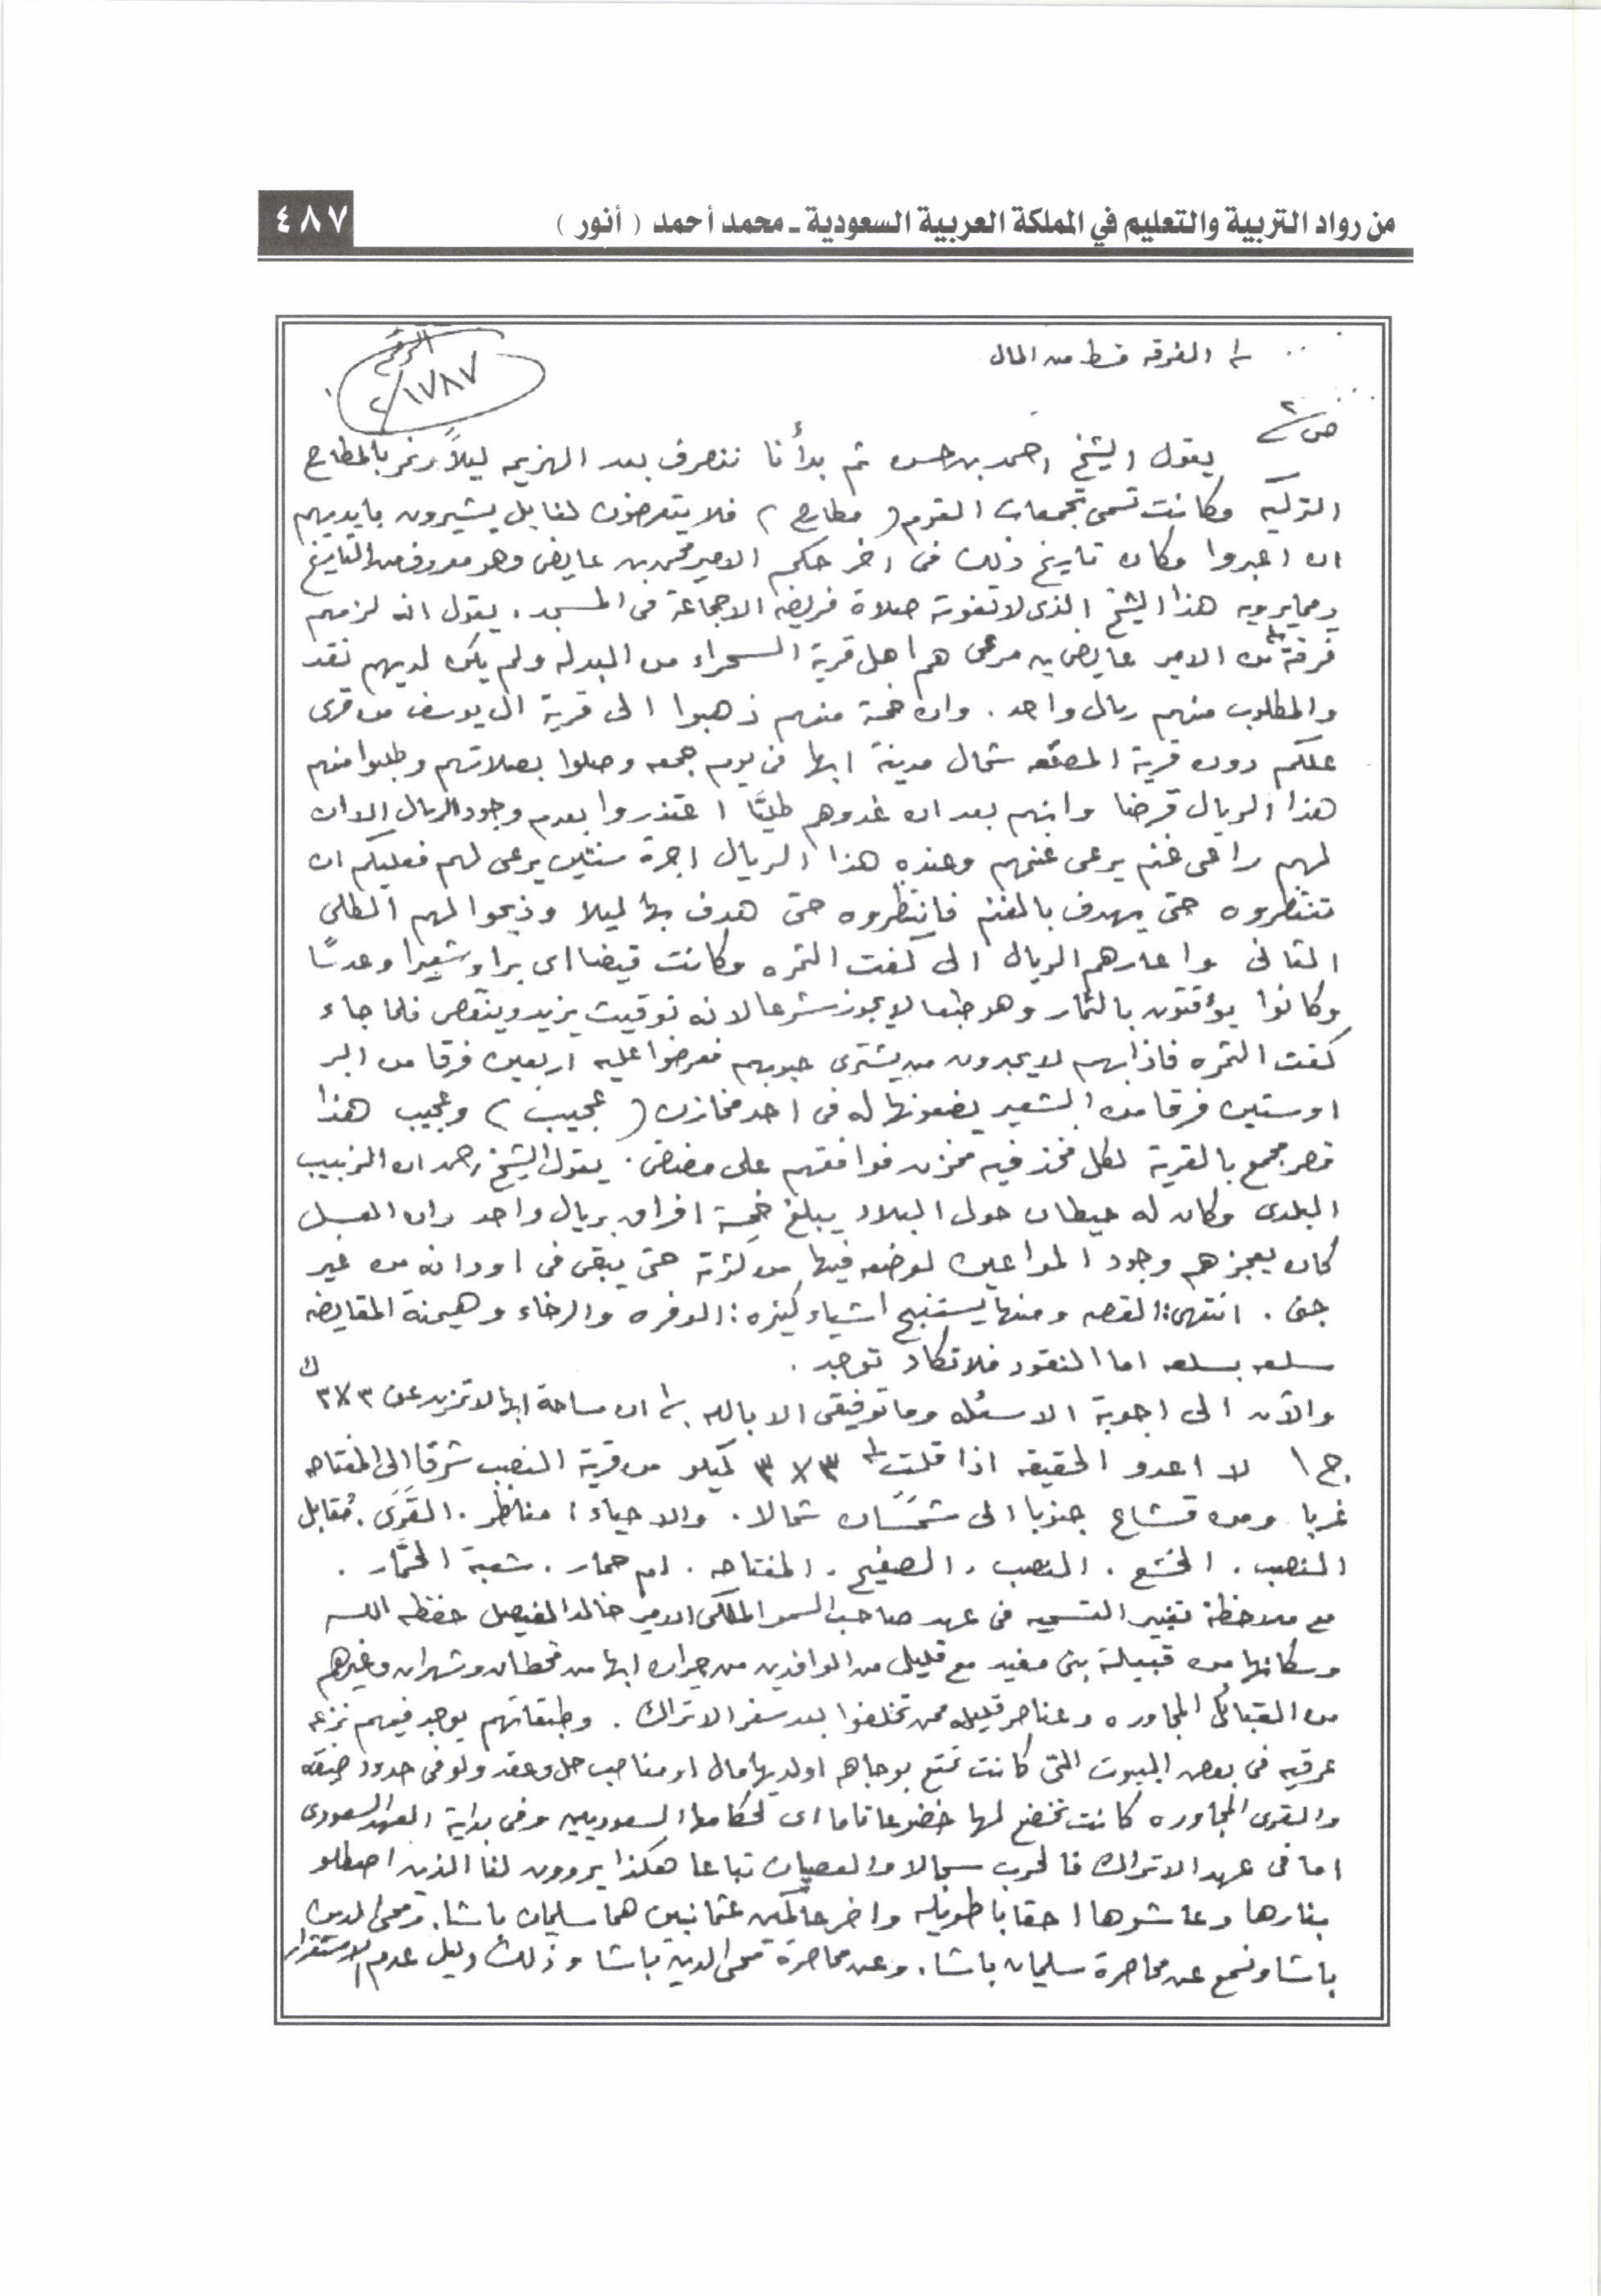 من رواد التربية والتعليم في المملكة العربية السعودية ـ محمد أحمد ( أنور )
٤٨٧
١/ الفرقه قسط من المال
الرقم
٢/١٧٨٧
ص/٢
يقول الشيخ احمد بن حسن ثم بدأنا ننصرف بعد الهزيمه ليلاً ونمر بالمطارح
التركيه وكانت تسمى تجمعات القوم ( مطارح ) فلا يتعرضون لنا بل يشيرون بايديهم
ان اعبروا وكان تاريخ ذلك فى اخر حكم الامير محمد بن عايض وهو معروف من التاريخ
ومما يرويه هذا الشيخ الذى لا تفوته صلاة فريضه الا جماعة فى المسجد . يقول انه لزمهم
فرقة١/ من الامير عايض بن مرعى هم اهل قرية السحراء من البدله ولم يكن لديهم نقد
والمطلوب منهم ريال واحد . وان خمسة منهم ذهبوا الى قرية ال يوسف من قرى
علكم دون قرية المصنعه شمال مدينة ابها فى يوم جمعه وصلوا بصلاتهم وطلبوا منهم
هذا الريال قرضا وانهم بعد ان غدوهم طليًّا اعتذروا بعدم وجود الريال الا ان
لهم راعى غنم يرعى غنمهم وعنده هذا الريال اجرة سنتين يرعى لهم فعليكم ان
تنتظروه حتى يهدف بالغنم فانتظروه حتى هدف بها ليلا وذبحوا لهم الطلى
الثانى واعارهم الريال الى كفت الثمره وكانت قيضا اى برا وشعيرا وعدسًا
وكانوا يؤقتون بالثمار وهو طبعا لا يجوز شرعا لانه توقيت يزيد وينقص فلما جاء
كفت الثمره فاذا بهم لا يجدون من يشترى حبوبهم فعرضوا عليه اربعين فرقا من البر
او ستين فرقا من الشعير يضعونها له فى احد مخازن ( عجيب ) وعجيب هذا
قصر مجمع بالقرية لكل فخذ فيه مخزن فوافقهم على مضض . يقول الشيخ احمد ان الزبيب
البلدى وكان له حيطان حول البلاد يبلغ خمسة افراق بريال واحد وان العسل
كان يعجزهم وجود المواعين لوضعه فيها من كثرته حتى يبقى فى اودانه من غير
جنى . انتهى: القصه ومنها يستنتج اشياء كثيره : الوفره والرخاء وهيمنة المقايضه
سلعه بسلعه اما النقود فلا تكاد توجد .
والآن الى اجوبة الاسئله وما توفيقى الا بالله . ١/ ان مساحة ابها لا تزيد عن ٣×٣ ك
ج١ لا اعدو الحقيقه اذا قلت١/ ٣×٣ كيلو من قرية النصب شرقا الى المفتاحه
غربا ومن قشاع جنوبا الى شمسان شمالا . والاحياء : مناظر . القَرَى . مُقابل
النصب . الخشع . النصب . الصفيح . المفتاحه . ام حمار . شعبة الخمَّار .
مع ملاحظة تغيير التسميه فى عهد صاحب السمو الملكى الامير خالد الفيصل حفظه الله
وسكانها من قبيلة بنى مغيد مع قليل من الوافدين من جيران ابها من قحطان وشهران وغيرهم
من القبائل المجاوره وعناصر قليله ممن تخلفوا بعد سفر الاتراك . وطبقاتهم يوجد فيهم نزعه
عرقيه فى بعض البيوت التى كانت تمتع بوجاهه او لديها مال او مناصب حل وعقد ولو فى حدود ضيقه
والقرى المجاوره كانت تخضع لها خضوعا تاما اى لحكامها السعوديين وفى بداية العهد السعودى
اما فى عهد الاتراك فالحرب سجالا والعصيان تباعا هكذا يروون لنا الذين اصطلو
بنارها وعاشوها احقابا طويله واخر حاكمين عثمانيين هما سليمان باشا . ومحى الدين
باشا ونسمع عن محاصرة سليمان باشا . وعن محاصرة محى الدين باشا وذلك دليل عدم الاستقرار